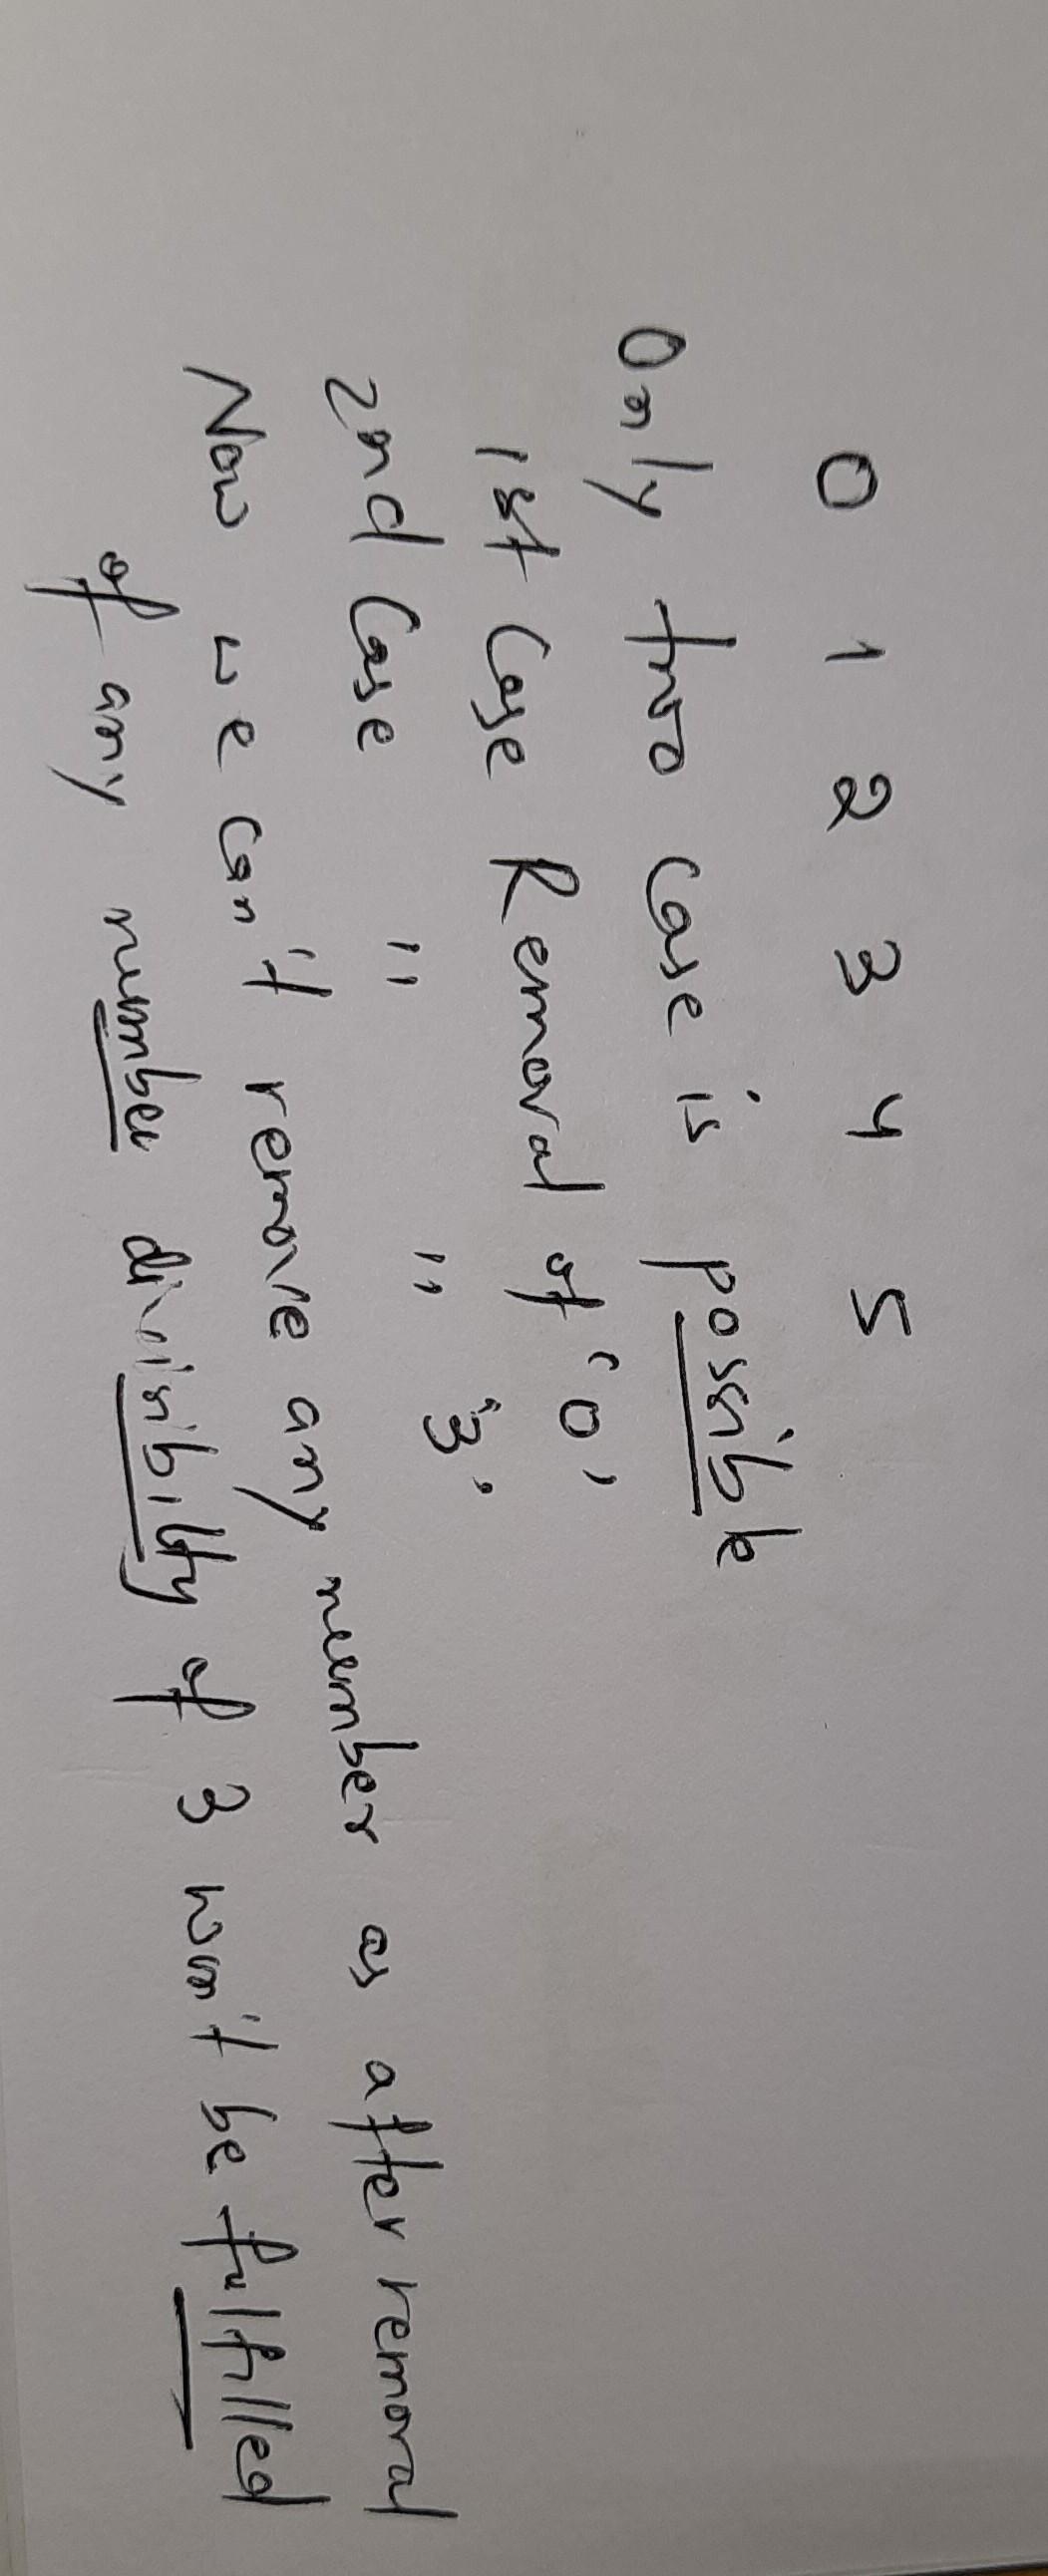 0 1 2 3 4 5
Only two case is possible
1st Case Removal of '0'
2nd Case " " '3'
Now we can't remove any number as after removal
of any number divisibilty of 3 won't be fulfilled